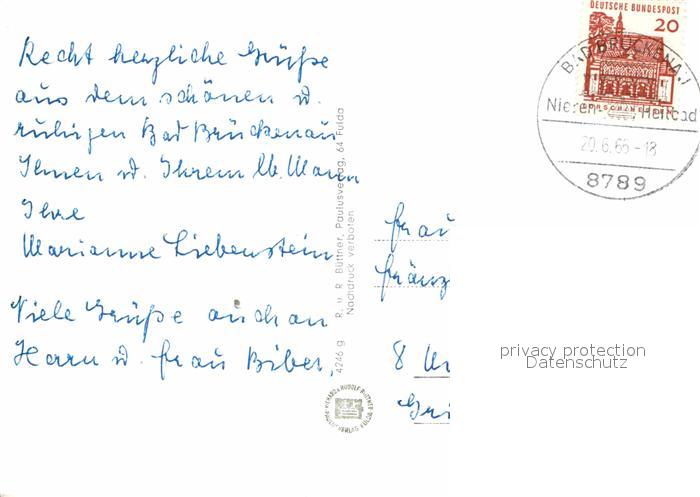 Recht herzliche Grüße
aus dem schönen u.
ruhigen Bad Brückenau
Ihnen u. Ihrem lb. Mann
Ihre
Marianne Liebenstein
Viele Grüße auch an
Herrn u. Frau Biber,
4246 g R. u. R. Büttner, Paulusverlag, 64 Fulda
Nachdruck verboten
DEUTSCHE BUNDESPOST
20
BAD BRÜCKENAU
Nieren- Heilbad
8789
Frau
Fränz
8
privacy protection
Datenschutz